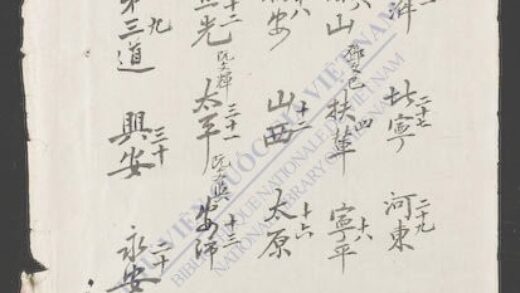 北寧 二十七 河東 二十九
山 八 扶 四 寧平 十八
安 八 山西 十二 太原 十六
光 十二 阮文輝 太平 三十一 阮文 十三
第三道 九 興安 三十 永安 二十
VIỆN QUỐC GIA VIỆT NAM
BIBLIOTHÈQUE NATIONALE DU VIETNAM
NATIONAL LIBRARY OF VIETNAM